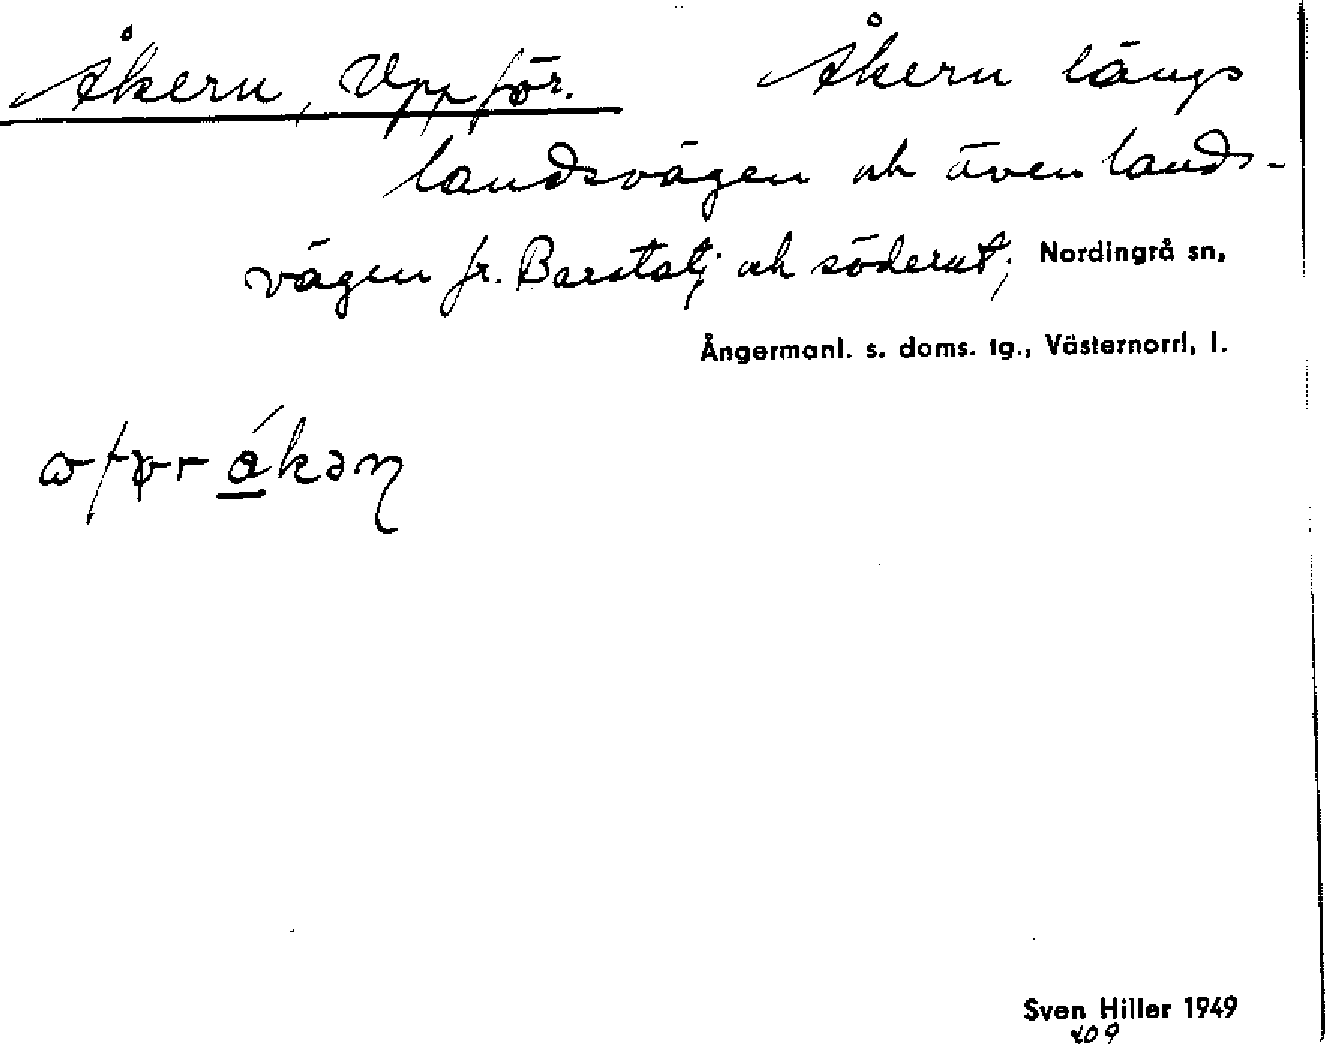 Åkern, Uppför. Åkern längs
landsvägen och även lands-
vägen fr. Barstatj och söderut; Nordingrå sn,
Ångermanl. s. doms. tg., Västernorrl, l.
Sven Hiller 1949
409